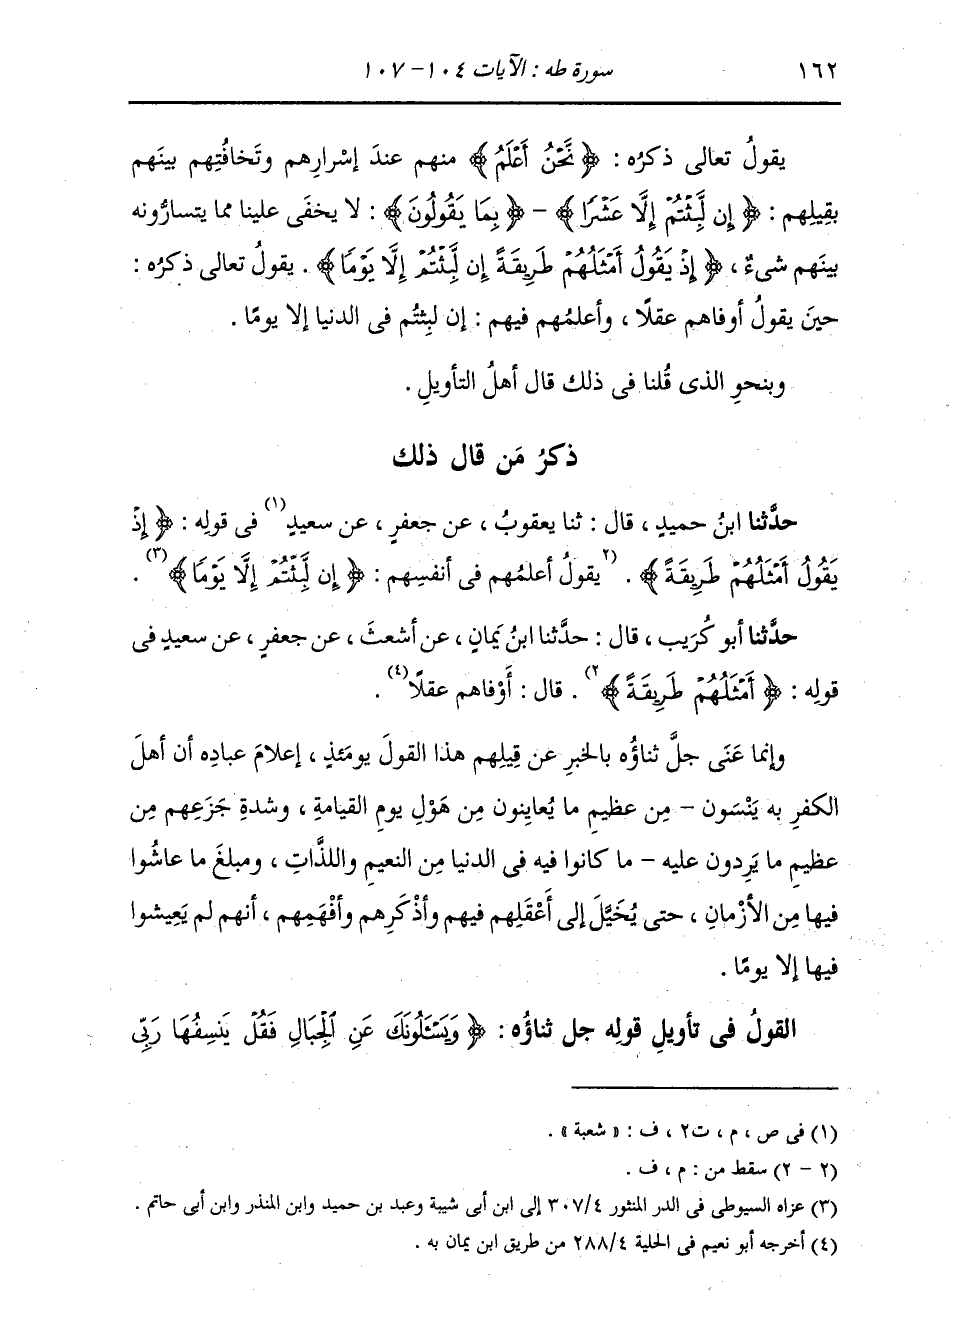 ١٦٢ سورة طه : الآيات ١٠٤ - ١٠٧
يقولُ تعالى ذكرُه : ﴿ نَّحْنُ أَعْلَمُ ﴾ منهم عندَ إسْرارِهم وتَخافُتِهم بينَهم
بقِيلِهم : ﴿ إِن لَّبِثْتُمْ إِلَّا عَشْرًا ﴾ - ﴿ بِمَا يَقُولُونَ ﴾ : لا يخفَى علينا مما يتسارُّونه
بينَهم شيءٌ ، ﴿ إِذْ يَقُولُ أَمْثَلُهُمْ طَرِيقَةً إِن لَّبِثْتُمْ إِلَّا يَوْمًا ﴾ . يقولُ تعالى ذكرُه :
حينَ يقولُ أوفاهم عقلًا ، وأعلمُهم فيهم : إن لبِثتُم فى الدنيا إلا يومًا .
وبنحوِ الذى قُلنا فى ذلك قال أهلُ التأويلِ .
ذكرُ مَن قال ذلك
حدَّثنا ابنُ حميدٍ ، قال : ثنا يعقوبُ ، عن جعفرٍ ، عن سعيدٍ(١) فى قولِه : ﴿ إِذْ
يَقُولُ أَمْثَلُهُمْ طَرِيقَةً ﴾ . (٢ يقولُ أعلمُهم فى أنفسِهم : ﴿ إِن لَّبِثْتُمْ إِلَّا يَوْمًا ﴾(٣) .
حدَّثنا أبو كُرَيبٍ ، قال : حدَّثنا ابنُ يَمانٍ ، عن أشعثَ ، عن جعفرٍ ، عن سعيدٍ فى
قولِه : ﴿ أَمْثَلُهُمْ طَرِيقَةً ﴾ ٢) . قال : أَوْفاهم عقلًا(٤) .
وإنما عَنَى جلَّ ثناؤُه بالخبرِ عن قِيلِهم هذا القولَ يومَئذٍ ، إعلامَ عبادِه أن أهلَ
الكفرِ به يَنْسَون - مِن عظيمِ ما يُعاينون مِن هَوْلِ يومِ القيامةِ ، وشدةِ جَزَعِهم مِن
عظيمِ ما يَرِدون عليه - ما كانوا فيه فى الدنيا مِن النعيمِ واللذَّاتِ ، ومبلغَ ما عاشُوا
فيها مِن الأزْمانِ ، حتى يُخَيَّلَ إلى أعْقَلِهم فيهم وأذْكَرِهم وأفْهَمِهم ، أنهم لم يَعِيشوا
فيها إلا يومًا .
القولُ فى تأويلِ قولِه جل ثناؤُه : ﴿ وَيَسْـَٔلُونَكَ عَنِ ٱلْجِبَالِ فَقُلْ يَنسِفُهَا رَبِّى
(١) فى ص ، م ، ت٢ ، ف : « شعبة » .
(٢ - ٢) سقط من : م ، ف .
(٣) عزاه السيوطى فى الدر المنثور ٣٠٧/٤ إلى ابن أبى شيبة وعبد بن حميد وابن المنذر وابن أبى حاتم .
(٤) أخرجه أبو نعيم فى الحلية ٢٨٨/٤ من طريق ابن يمان به .